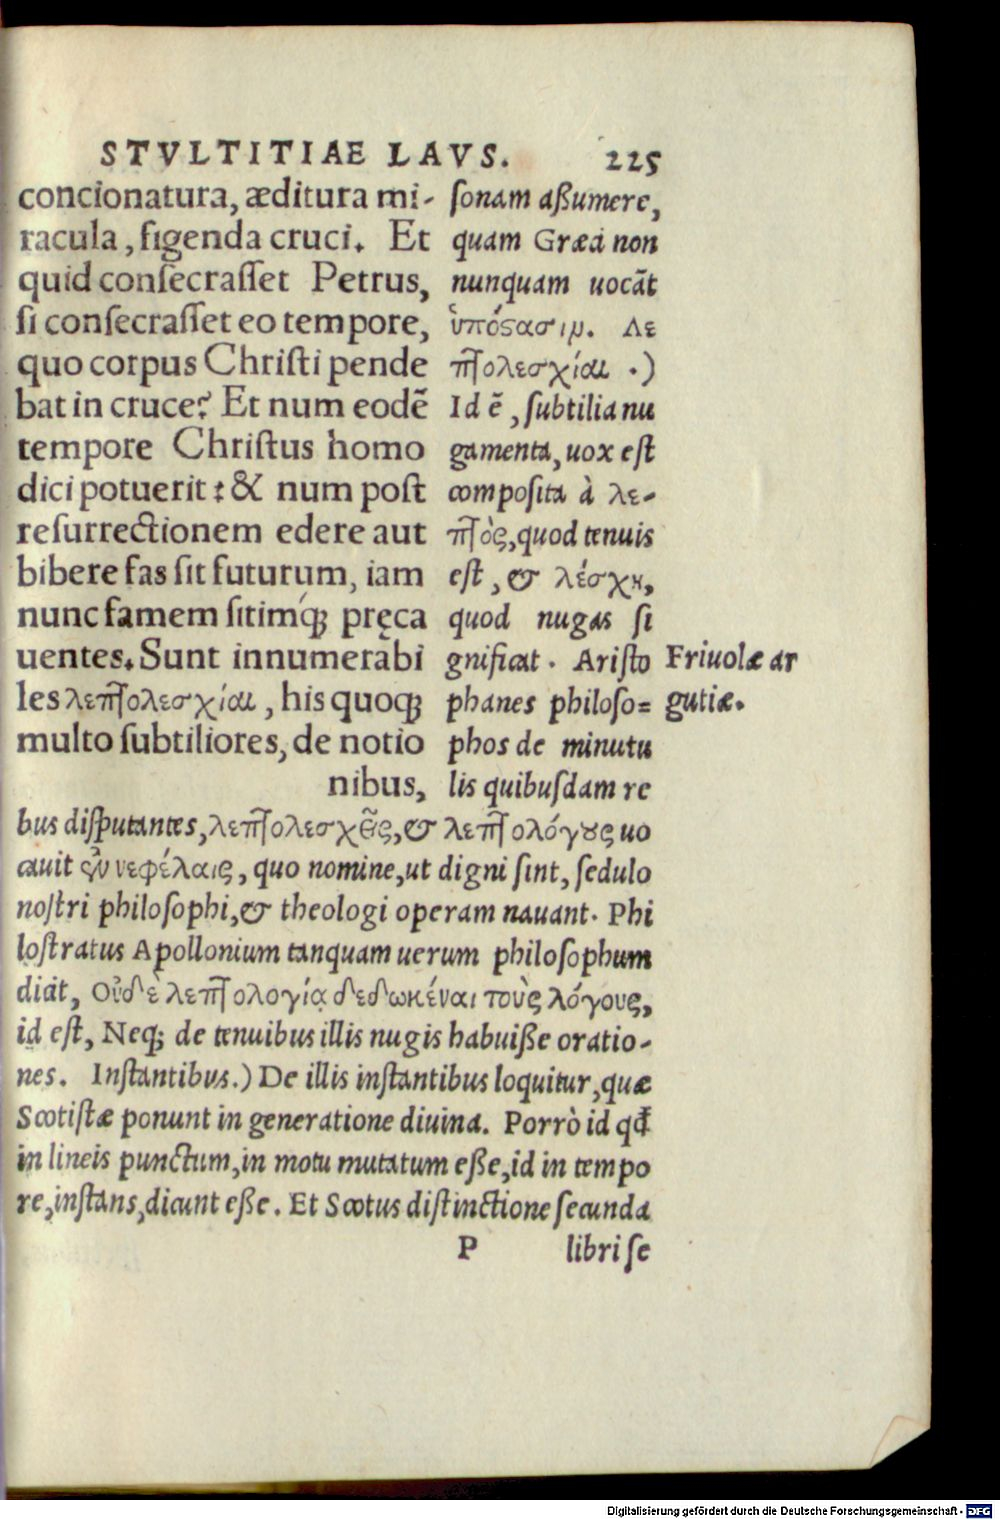 STVLTITIAE LAVS. 225
concionatura, æditura mi-
racula, figenda cruci. Et
quid consecrasset Petrus,
si consecrasset eo tempore,
quo corpus Christi pende
bat in cruce? Et num eodẽ
tempore Christus homo
dici potuerit: & num post
resurrectionem edere aut
bibere fas sit futurum, iam
nunc famem sitimq́; pręca
uentes. Sunt innumerabi
les λεπτολεσχίαι, his quoq;
multo subtiliores, de notio
nibus,
sonam aßumere,
quam Græci non
nunquam uocãt
ὑπόςασιμ. Λε
πτολεσχίαι .)
Id ẽ, subtilia nu
gamenta, uox est
composita à λε-
πτὸς, quod tenuis
est, & λέσχη,
quod nugas si
gnificat. Aristo
phanes philoso=
phos de minutu
lis quibusdam re
Friuolæ ar
gutiæ.
bus disputantes, λεπτολεσχεῖς, & λεπτολόγους uo
cauit ἐν νεφέλαις, quo nomine, ut digni sint, sedulo
nostri philosophi, & theologi operam nauant. Phi
lostratus Apollonium tanquam uerum philosophum
dicit, Οὐδὲ λεπτολογίᾳ δεδωκέναι τοὺς λόγους,
id est, Neq; de tenuibus illis nugis habuiße oratio-
nes. Instantibus.) De illis instantibus loquitur, quæ
Scotistæ ponunt in generatione diuina. Porrò id qđ
in lineis punctum, in motu mutatum eße, id in tempo
re, instans, dicunt eße. Et Scotus distinctione secunda
P libri se
Digitalisierung gefördert durch die Deutsche Forschungsgemeinschaft - DFG